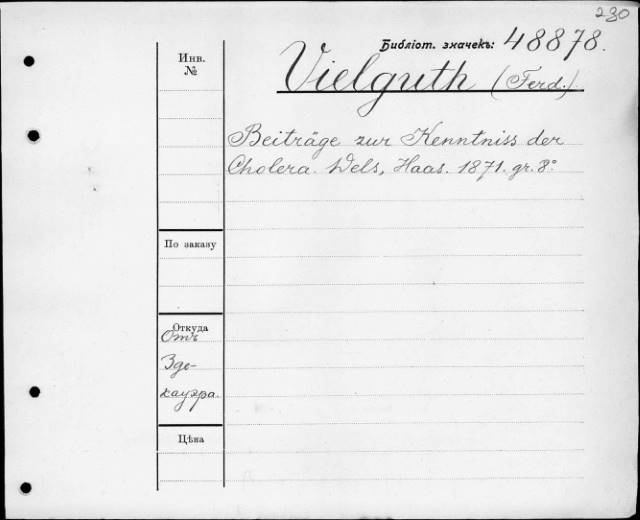 230
Библіот. значекъ: 48878.
Инв.
№
Vielguth (Ferd.)
Beiträge zur Kenntniss der
Cholera. Wels, Haas. 1871. gr. 8°
По заказу
Откуда
Отъ
Здекауэра.
Цѣна